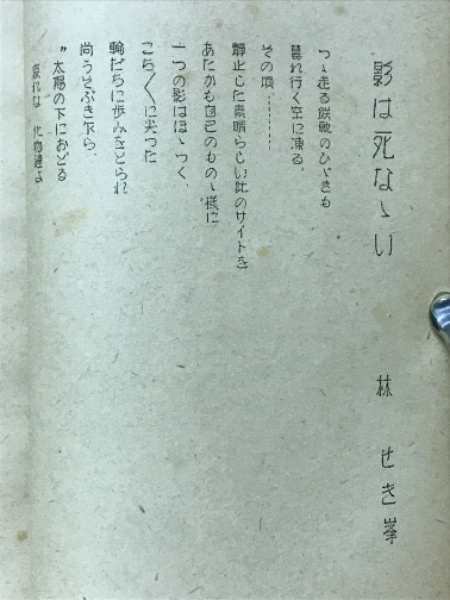 影は死なゝい
林 せき峯
つゝ走る鉄靴のひゞきも
暮れ行く空に凍る、
その頃………
静止した素晴らしい此のサイトを
あたかも自己のものゝ様に
一つの影はほゝつく、
こち〱に尖つた
輪だちに歩みをとられ
尚うそぶき乍ら、
〃太陽の下におどる
哀れな 化物達よ